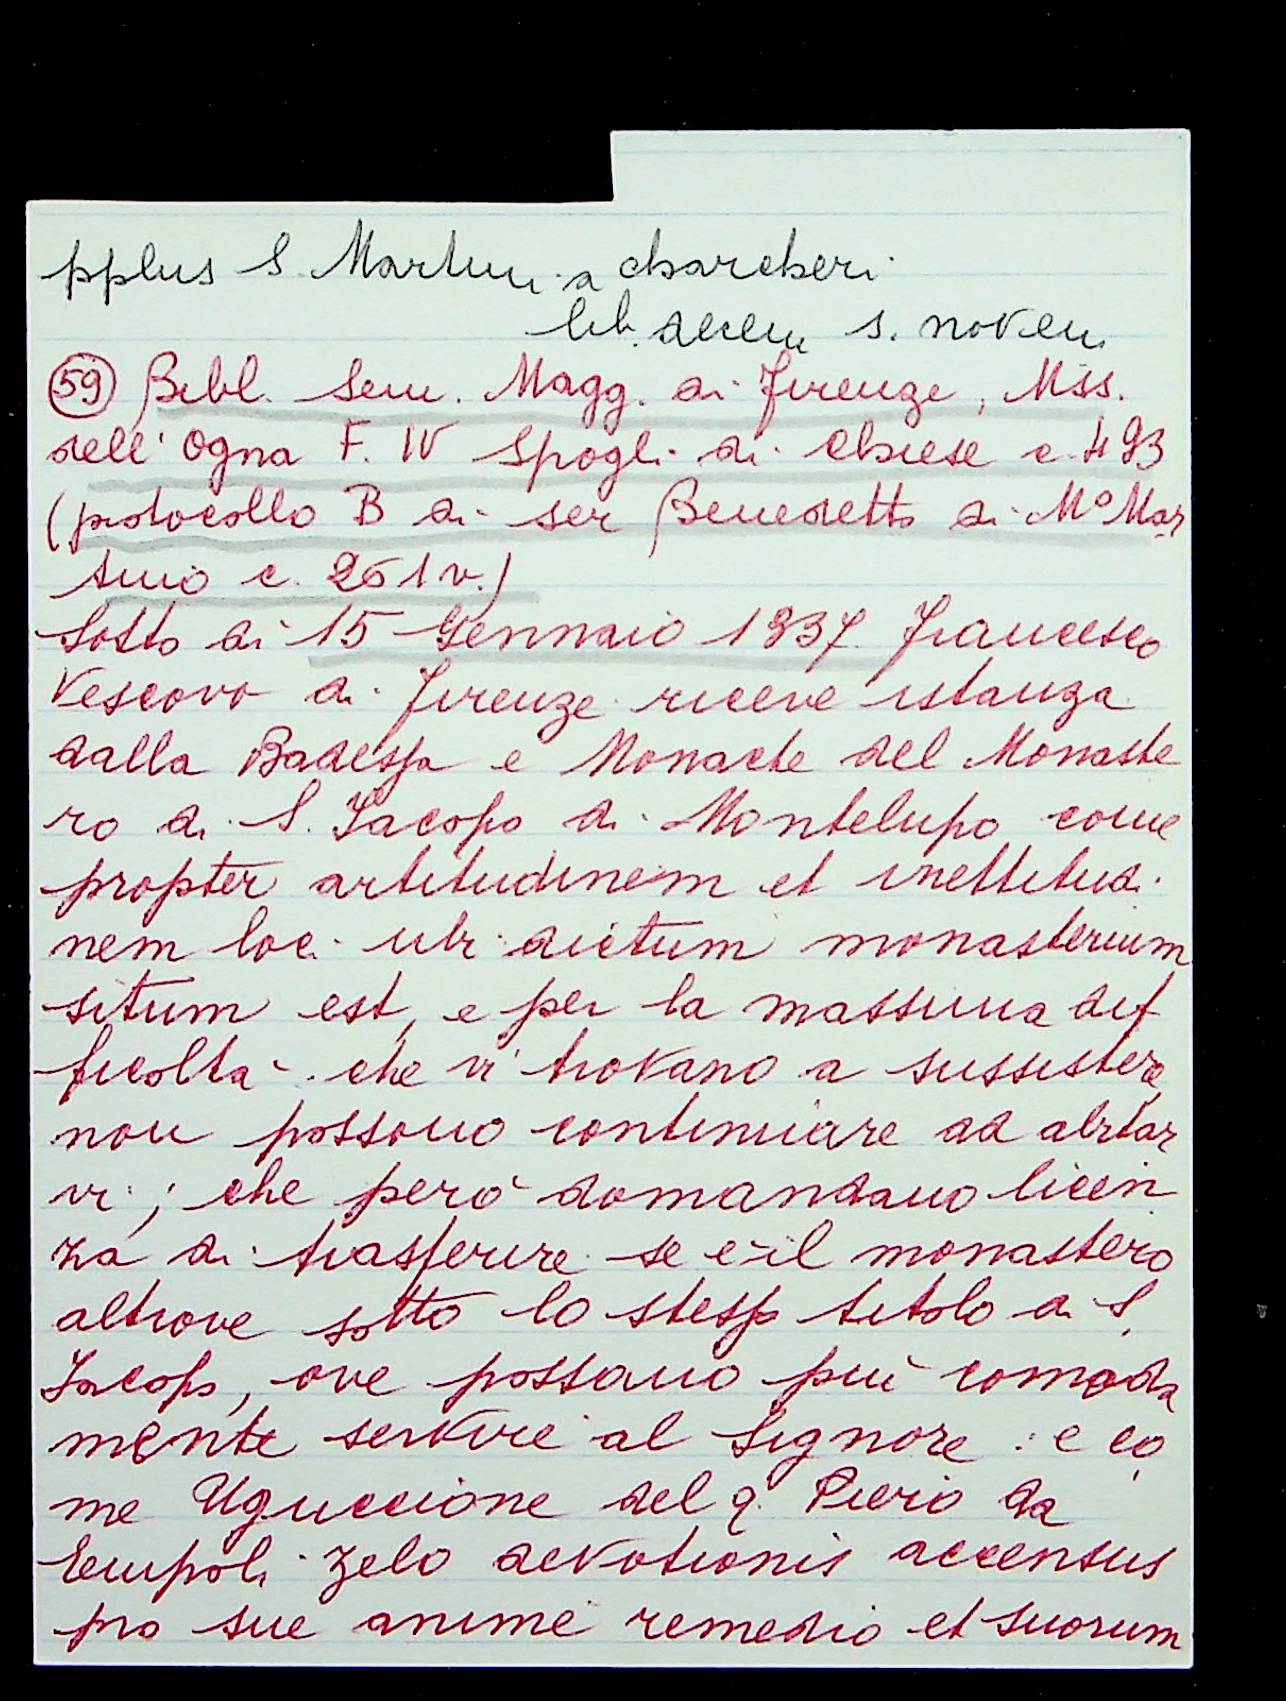 pplus S. Martini a charcheri
lib. decem s. novem
(59) Bibl. Sem. Magg. di Firenze, Mss.
dell'Ogna F. IV Spogli di Chiese c. 493
(protocollo B di ser Benedetto di M° Mar
tino c. 261v.)
Sotto di 15 Gennaio 1337 Francesco
Vescovo di Firenze riceve istanza
dalla Badessa e Monache del Monaste
ro di S. Jacopo di Montelupo come
propter artitudinem et inettitudi
nem loci ubi dictum monasterium
situm est, e per la massima dif
ficoltà che vi trovano a sussistere
non possono continuare ad abitar
vi; che però domandano licen
za di trasferire se e il monastero
altrove sotto lo stesso titolo di S.
Jacopo, ove possano più comoda
mente servire al Signore: e co
me Uguccione del q. Piero da
Empoli zelo devotionis accensus
pro sue anime remedio et suorum